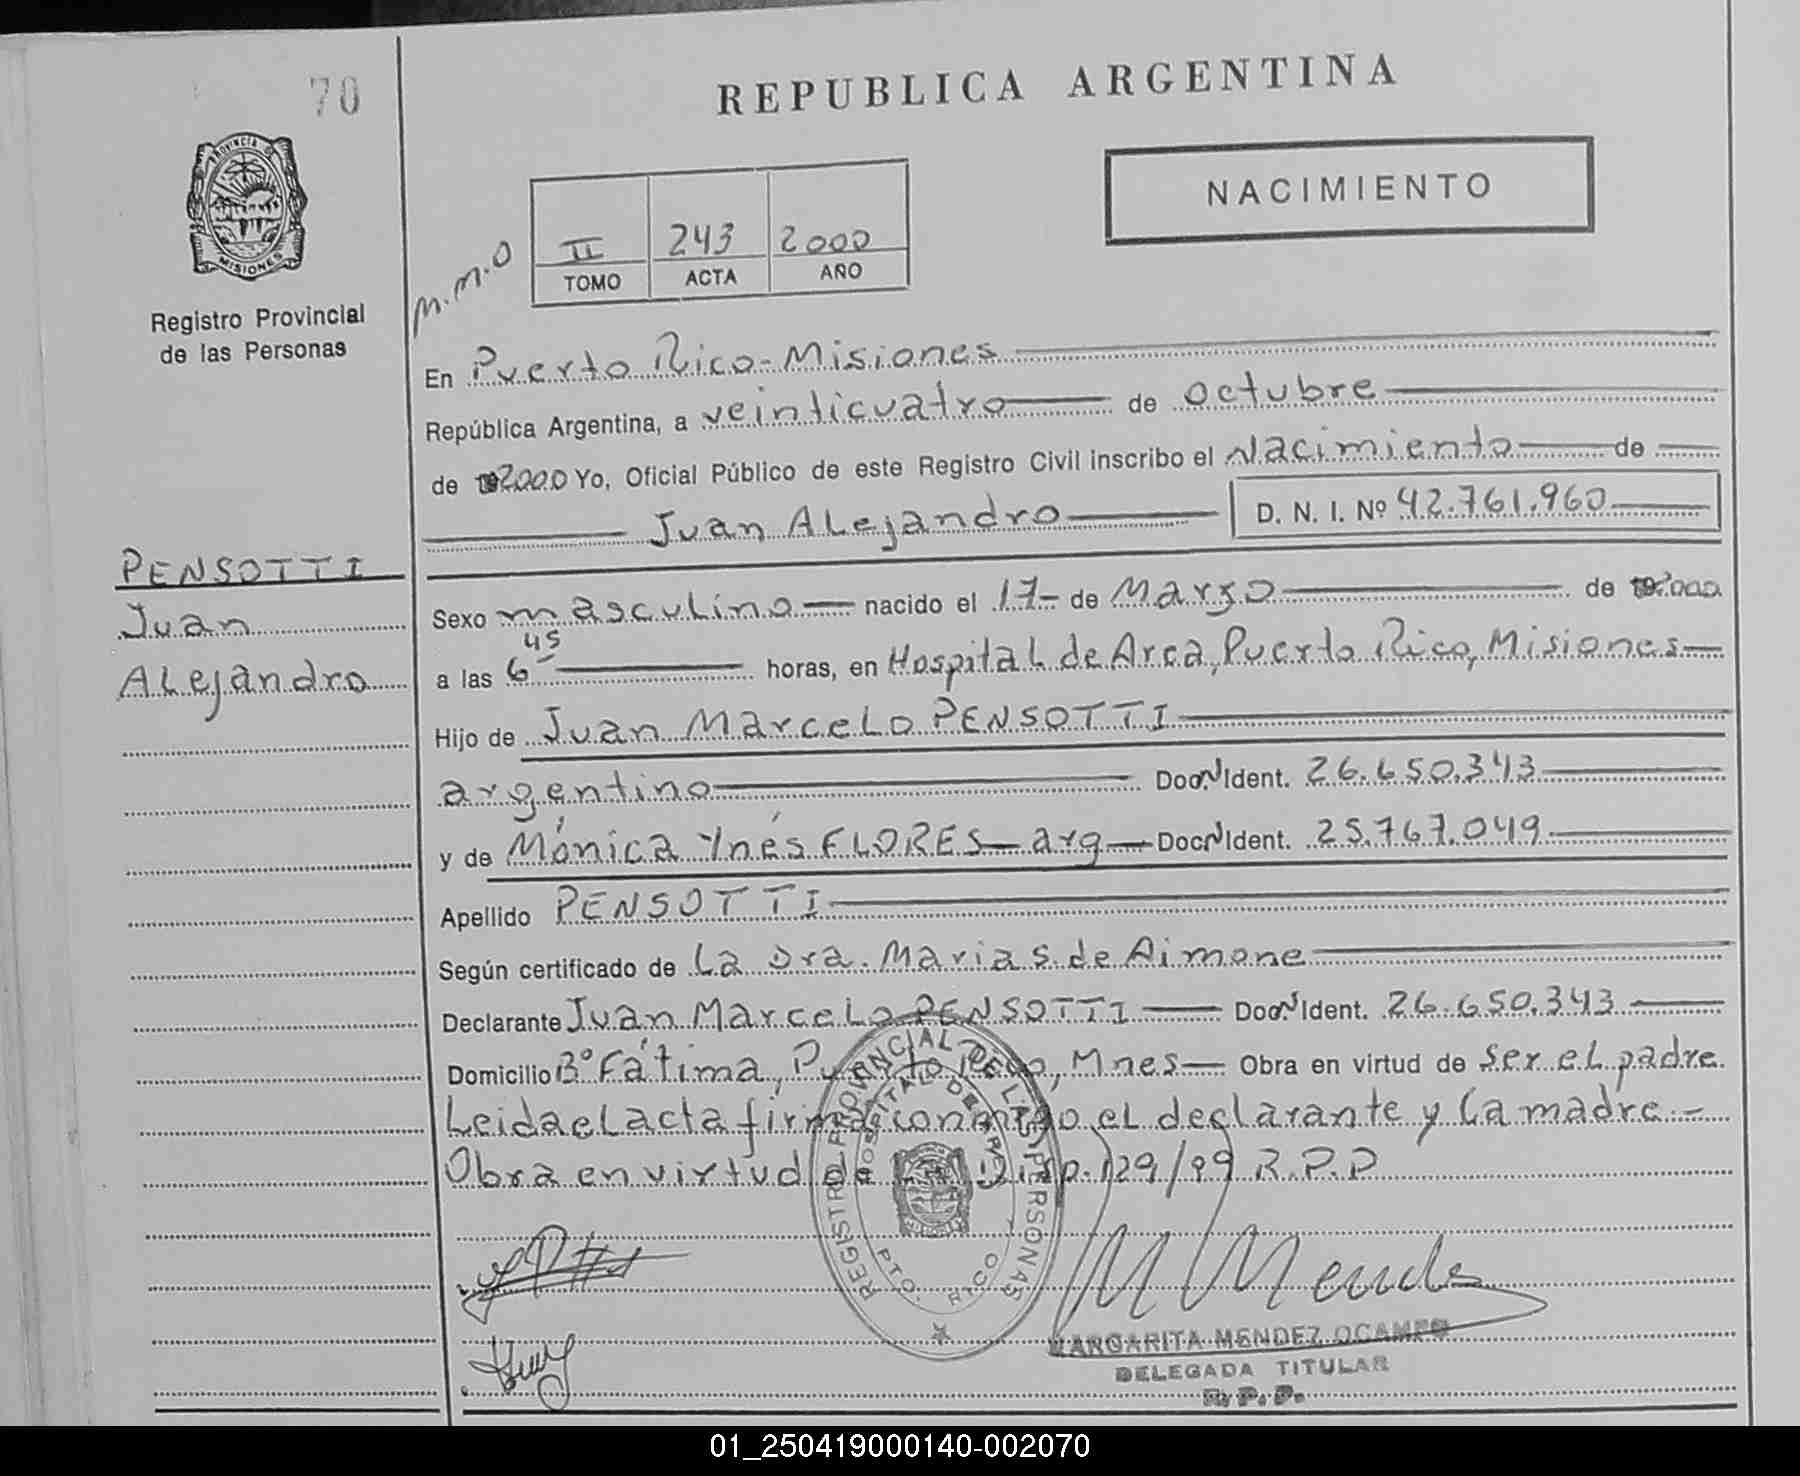 70
REPUBLICA ARGENTINA
PROVINCIA DE
MISIONES
NACIMIENTO
II 243 2000
TOMO ACTA AÑO
M.M.O
Registro Provincial
de las Personas
En Puerto Rico - Misiones
República Argentina, a veinticuatro de octubre
de 2000 Yo, Oficial Público de este Registro Civil inscribo el Nacimiento de
Juan Alejandro D. N. I. Nº 42.761.960
PENSOTTI
Juan
Alejandro
Sexo masculino nacido el 17- de Marzo de 2000
a las 6 45 horas, en Hospital de Area, Puerto Rico, Misiones
Hijo de Juan Marcelo PENSOTTI
argentino Doc. N Ident. 26.650.343
y de Mónica Ynés FLORES - arg - Doc. N Ident. 25.767.049
Apellido PENSOTTI
Según certificado de La Dra. Maria S. de Aimone
Declarante Juan Marcelo PENSOTTI Doc. N Ident. 26.650.343
Domicilio Bº Fátima, Puerto Rico, Mnes - Obra en virtud de ser el padre
Leida el acta firma conmigo el declarante y la madre.-
Obra en virtud de la Disp. 129/99 R.P.P
REGISTRO PROVINCIAL DE LAS PERSONAS
HOSPITAL DE AREA
PTO. RICO
M Mendez
MARGARITA MENDEZ OCAMPO
DELEGADA TITULAR
R. P. P.
01_250419000140-002070